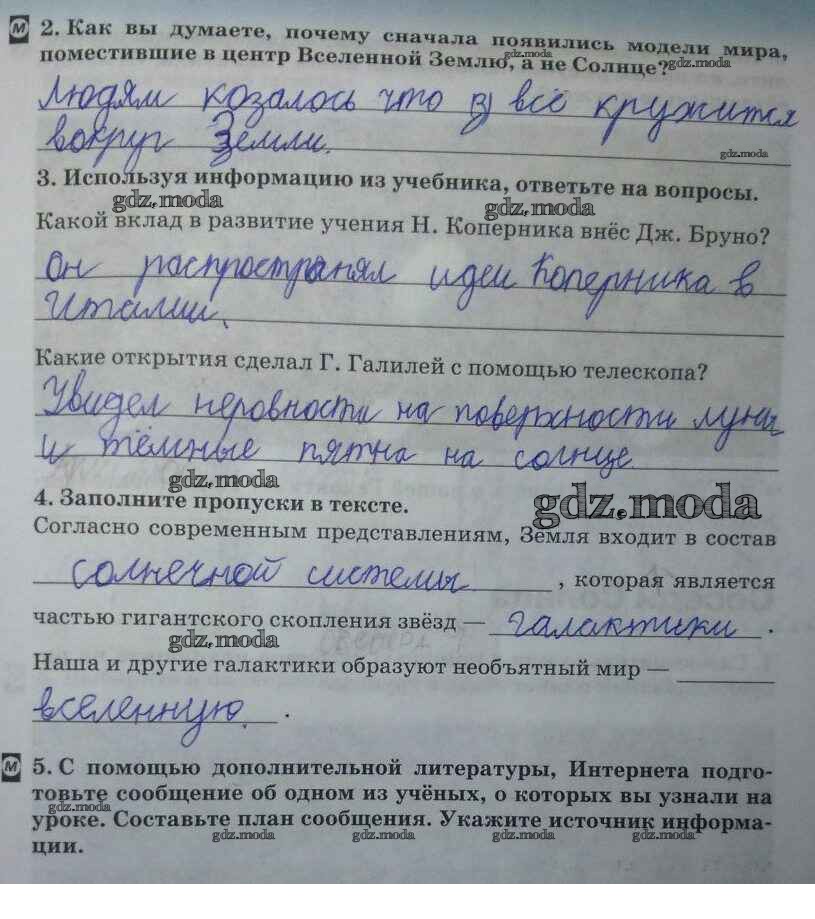 М 2. Как вы думаете, почему сначала появились модели мира,
поместившие в центр Вселенной Землю, а не Солнце?
gdz.moda gdz.moda
Людям козалось что всё кружится
вокруг Земли.
gdz.moda
3. Используя информацию из учебника, ответьте на вопросы.
gdz.moda gdz.moda
Какой вклад в развитие учения Н. Коперника внёс Дж. Бруно?
Он распространял идеи Коперника в
Италии.
Какие открытия сделал Г. Галилей с помощью телескопа?
Увидел неровности на поверхности луны
и тёмные пятна на солнце
gdz.moda
4. Заполните пропуски в тексте.
gdz.moda
Согласно современным представлениям, Земля входит в состав
солнечной системы , которая является
частью гигантского скопления звёзд — галактики .
gdz.moda
Наша и другие галактики образуют необъятный мир —
вселенную .
М 5. С помощью дополнительной литературы, Интернета подго-
товьте сообщение об одном из учёных, о которых вы узнали на
gdz.moda
уроке. Составьте план сообщения. Укажите источник информа-
gdz.moda gdz.moda gdz.moda gdz.moda
ции.